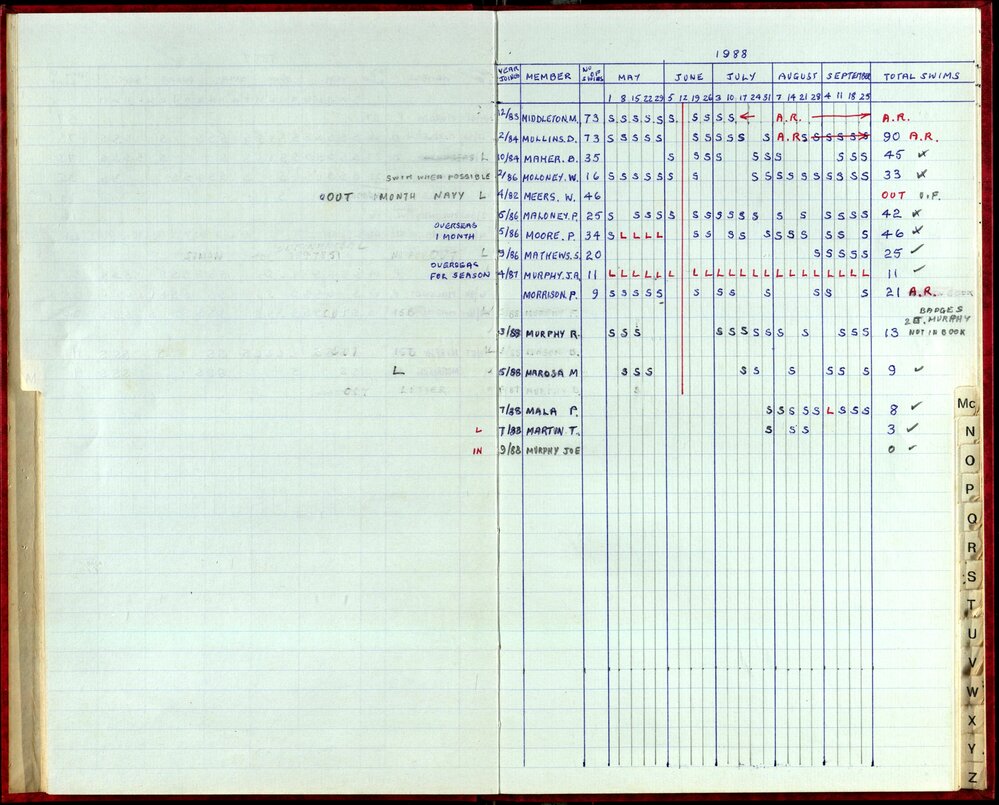 1988
YEAR JOINED MEMBER NO OF SWIMS MAY JUNE JULY AUGUST SEPTEMBER TOTAL SWIMS
1 8 15 22 29 5 12 19 26 3 10 17 24 31 7 14 21 28 4 11 18 25
12/83 MIDDLETON.M. 73 S S S S S S S S S S A.R. A.R.
2/84 MULLINS.D. 73 S S S S S S S S S S S A.R S S S S S S 90 A.R.
L 10/84 MAHER.B. 35 S S S S S S S S S S 45
SWIM WHEN POSSIBLE 2/86 MOLONEY.W. 16 S S S S S S S S S S S S S S S S S 33
OUT 1 MONTH NAVY L 4/82 MEERS. W. 46 OUT
5/86 MALONEY.P. 25 S S S S S S S S S S S S S S S S S 42
OVERSEAS
1 MONTH 5/86 MOORE.P. 34 S L L L L S S S S S S S S S S S 46
L 9/86 MATHEWS.S. 20 S S S S S 25
OVERSEAS
FOR SEASON 4/87 MURPHY.J.A 11 L L L L L L L L L L L L L L L L L L L L L 11
MORRISON.P. 9 S S S S S S S S S S S S 21 A.R.
BADGES
2 J. MURPHY
NOT IN BOOK
3/88 MURPHY R. S S S S S S S S S S S S S 13
L 5/88 HAROSA M S S S S S S S S S 9
7/88 MALA P. S S S S S L S S S 8
L 7/88 MARTIN T. S S S 3
IN 9/88 MURPHY JOE 0
M
Mc
N
O
P
Q
R
S
T
U
V
W
X
Y
Z